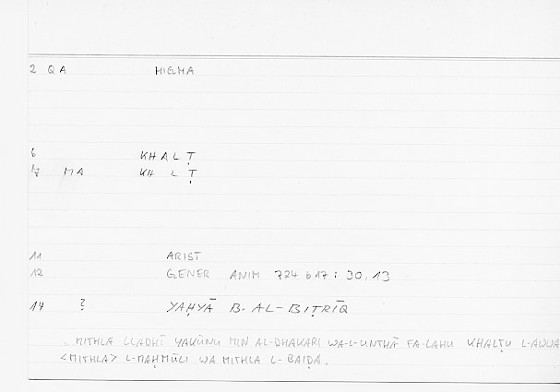 2 QA MIGMA
6 KHALṬ
7 MA KH L Ṭ
11 ARIST
12 GENER ANIM 724 b 17 : 30.13
17 ? YAḤYĀ B. AL-BIṬRĪQ
. MITHLA LLADHĪ YAKŪNU MIN AL-DHAKARI WA-L-UNTHĀ FA-LAHU KHALṬU L-AWWA
<MITHLA> L-MAḤMŪLI WA MITHLA L-BAIḌA.